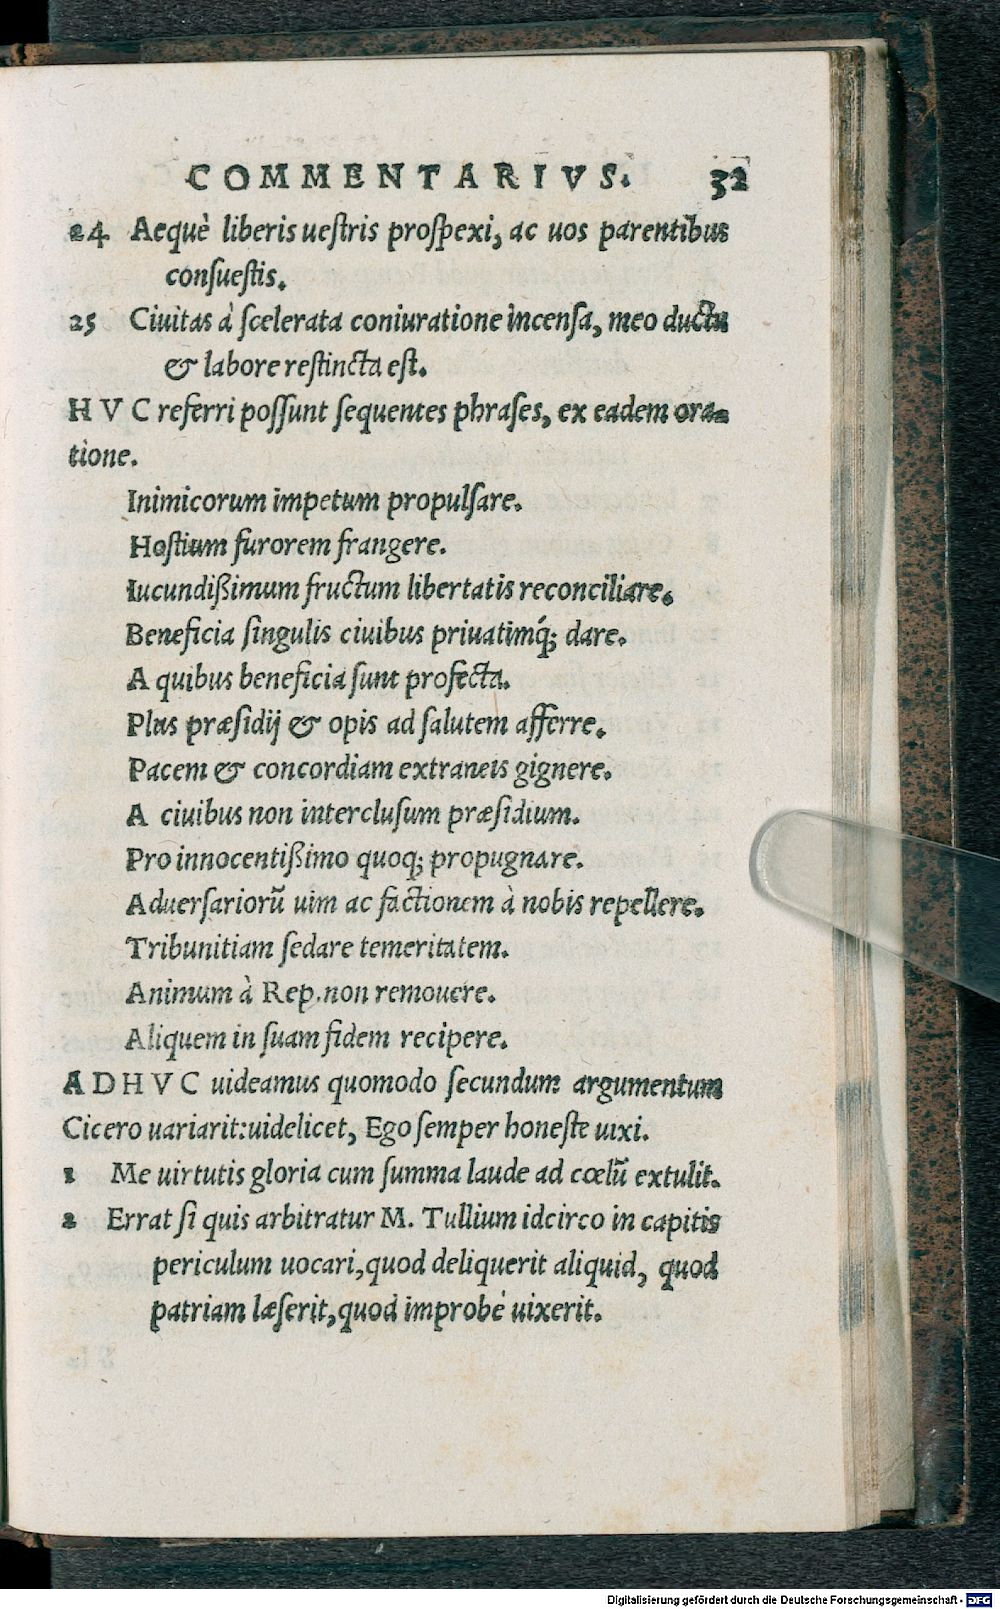 COMMENTARIVS. 32
24 Aequè liberis uestris prospexi, ac uos parentibus
consuestis.
25 Ciuitas à scelerata coniuratione incensa, meo ductu
& labore restincta est.
HVC referri possunt sequentes phrases, ex eadem ora-
tione.
Inimicorum impetum propulsare.
Hostium furorem frangere.
Iucundißimum fructum libertatis reconciliare.
Beneficia singulis ciuibus priuatimq́; dare.
A quibus beneficia sunt profecta.
Plus præsidij & opis ad salutem afferre.
Pacem & concordiam extraneis gignere.
A ciuibus non interclusum præsidium.
Pro innocentißimo quoq; propugnare.
Aduersariorũ uim ac factionem à nobis repellere.
Tribunitiam sedare temeritatem.
Animum à Rep. non remouere.
Aliquem in suam fidem recipere.
ADHVC uideamus quomodo secundum argumentum
Cicero uariarit: uidelicet, Ego semper honeste uixi.
1 Me uirtutis gloria cum summa laude ad cœlũ extulit.
2 Errat si quis arbitratur M. Tullium idcirco in capitis
periculum uocari, quod deliquerit aliquid, quod
patriam læserit, quod improbè uixerit.
Digitalisierung gefördert durch die Deutsche Forschungsgemeinschaft - DFG